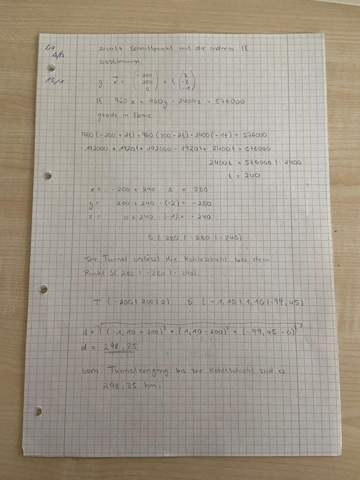 bestimmen.
g: x = (-200 200 0) + t (2 -2 -1)
E: 960x + 960y - 2400z = 576000
gerade in Ebene
960 (-200 + 2t) + 960 (200 - 2t) - 2400 (-1t) = 576000
192000 + 1920t + 192000 - 1920t + 2400t = 576000
2400t = 576000 : 2400
t = 240
x = -200 + 240 · 2 = 280
y = 200 + 240 · (-2) = -280
z = 0 + 240 · (-1) = -240
S ( 280 | -280 | -240 )
Der Tunnel die Kohleschicht bei dem
Punkt S( 280 | -280 | -240).
T ( -200 | 200 | 0 ) S ( -1,10 | 1,10 | -99,45 )
d = √((-1,10 + 200)² + (1,10 - 200)² + (-99,45 - 0)²)
d = 298,35
Vom Tunneleingang bis zur Kohleschicht sind es
298,35 km.